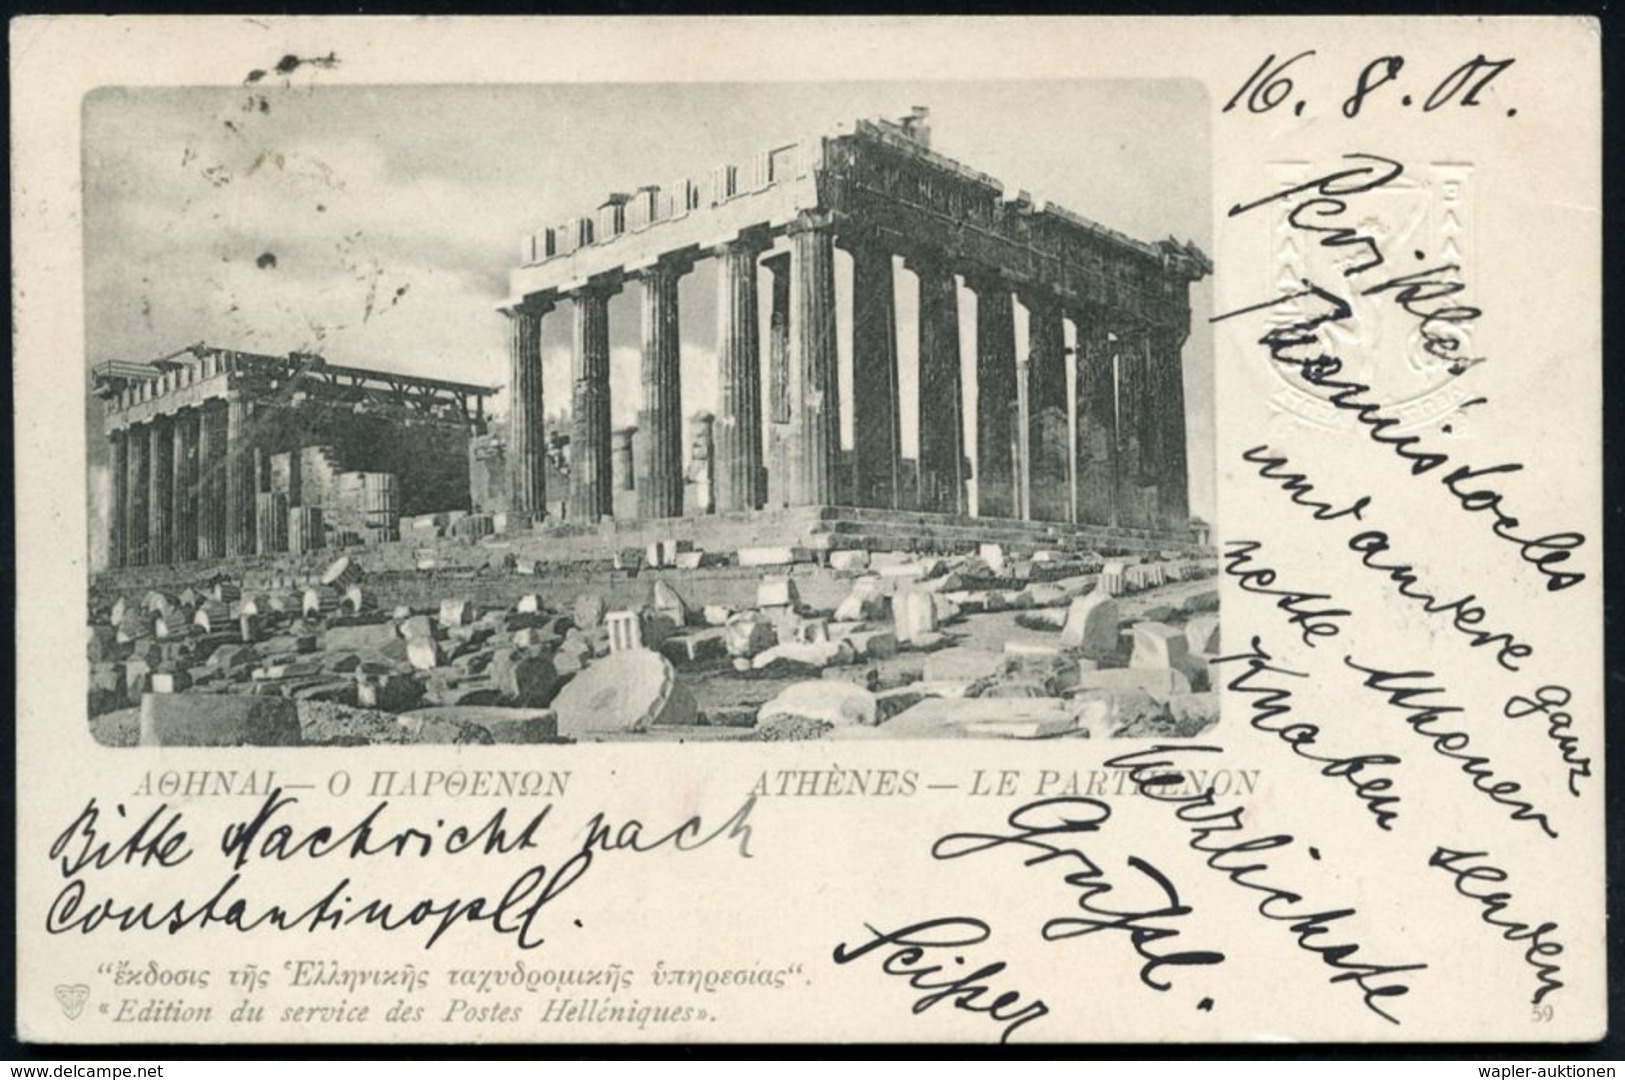 16. 8. 01.
Perikles
Themistocles
und andere ganz
nette Athener
Knaben senden
Herzlichste
Grüße.
ΑΘΗΝΑΙ — Ο ΠΑΡΘΕΝΩΝ
ATHÈNES — LE PARTHENON
Bitte Nachricht nach
Constantinopel.
“ἔκδοσις τῆς Ἑλληνικῆς ταχυδρομικῆς ὑπηρεσίας“.
«Edition du service des Postes Helléniques».
59
www.delcampe.net
wapler-auktionen